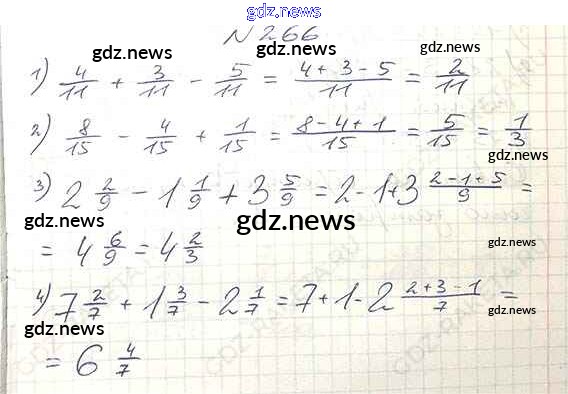 gdz.news
№ 266
gdz.news gdz.news
1) 4/11 + 3/11 - 5/11 = (4+3-5)/11 = 2/11
gdz.news gdz.news gdz.news
2) 8/15 - 4/15 + 1/15 = (8-4+1)/15 = 5/15 = 1/3
gdz.news gdz.news
3) 2 2/9 - 1 1/9 + 3 5/9 = 2-1+3 (2-1+5)/9 =
gdz.news
= 4 6/9 = 4 2/3
gdz.news gdz.news
4) 7 2/7 + 1 3/7 - 2 1/7 = 7+1-2 (2+3-1)/7 =
gdz.news gdz.news
= 6 4/7